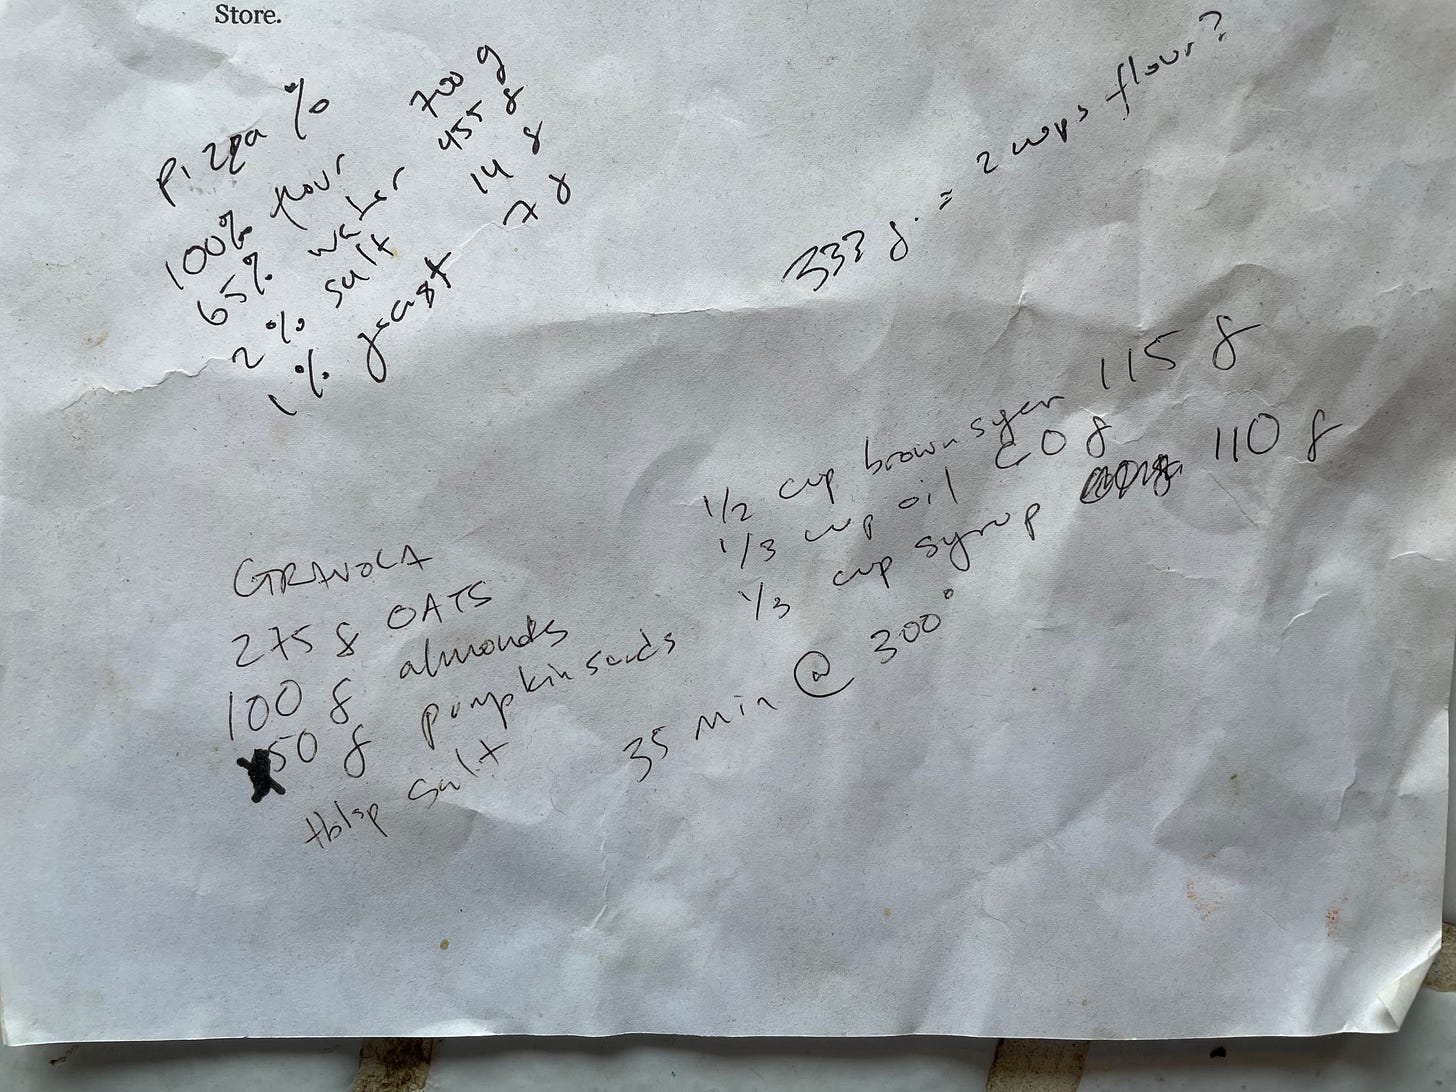 Store.
Pizza %
100% flour 700 g
65% water 455 g
2% salt 14 g
1% yeast 7 g
333 g. = 2 cups flour?
GRANOLA
275 g OATS
100 g almonds
50 g pumpkin seeds
tblsp salt
1/2 cup brown sugar 115 g
1/3 cup oil
1/3 cup syrup 110 g
35 min @ 300°